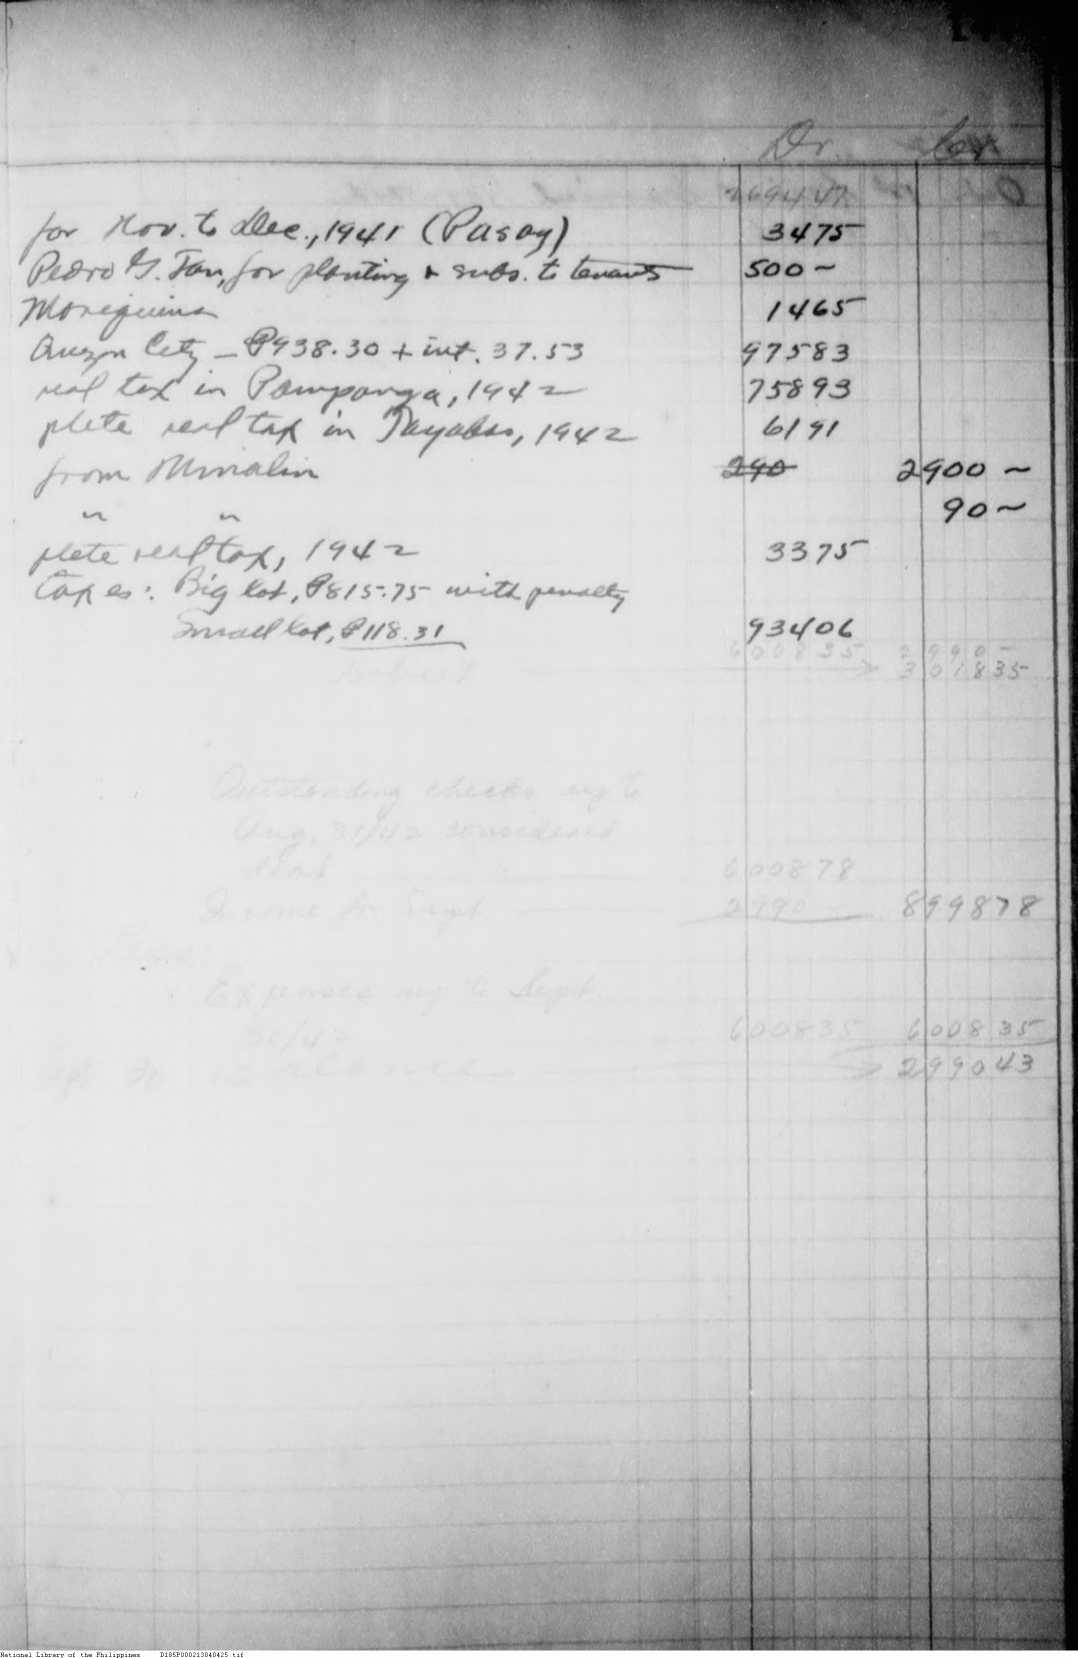 Dr. Cr
269447
for Nov. to Dec., 1941 (Pasay) 3475
Pedro G. Tan, for planting & subs. to tenants 500~
Moriquina 1465
Quezon City — ₱938.30 + int. 37.53 97583
real tax in Pampanga, 1942 75893
plete real tax in Tayabas, 1942 6191
from Minalin 290 2900~
" " 90~
plete real tax, 1942 3375
taxes: Big lot, ₱815.75 with penalty
Small lot, ₱118.31 93406
600835 2990-
301835
Outstanding checks up to
Aug. 31/42 considered
600878
Income for Sept 2990 899878
Expenses up to Sept.
30/42 600835 600835
299043
National Library of the Philippines D185P000213040425.tif